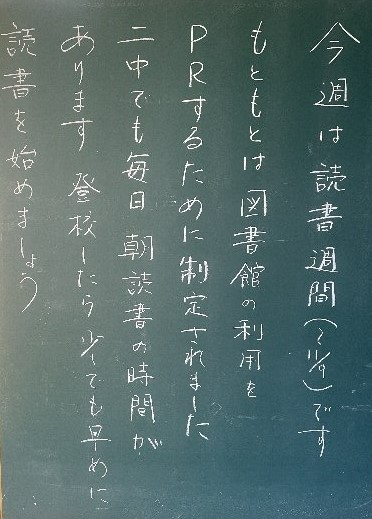 今週は読書週間(〜11/9)です
もともとは図書館の利用を
PRするために制定されました
二中でも毎日 朝読書の時間が
あります 登校したら少しでも早めに
読書を始めましょう